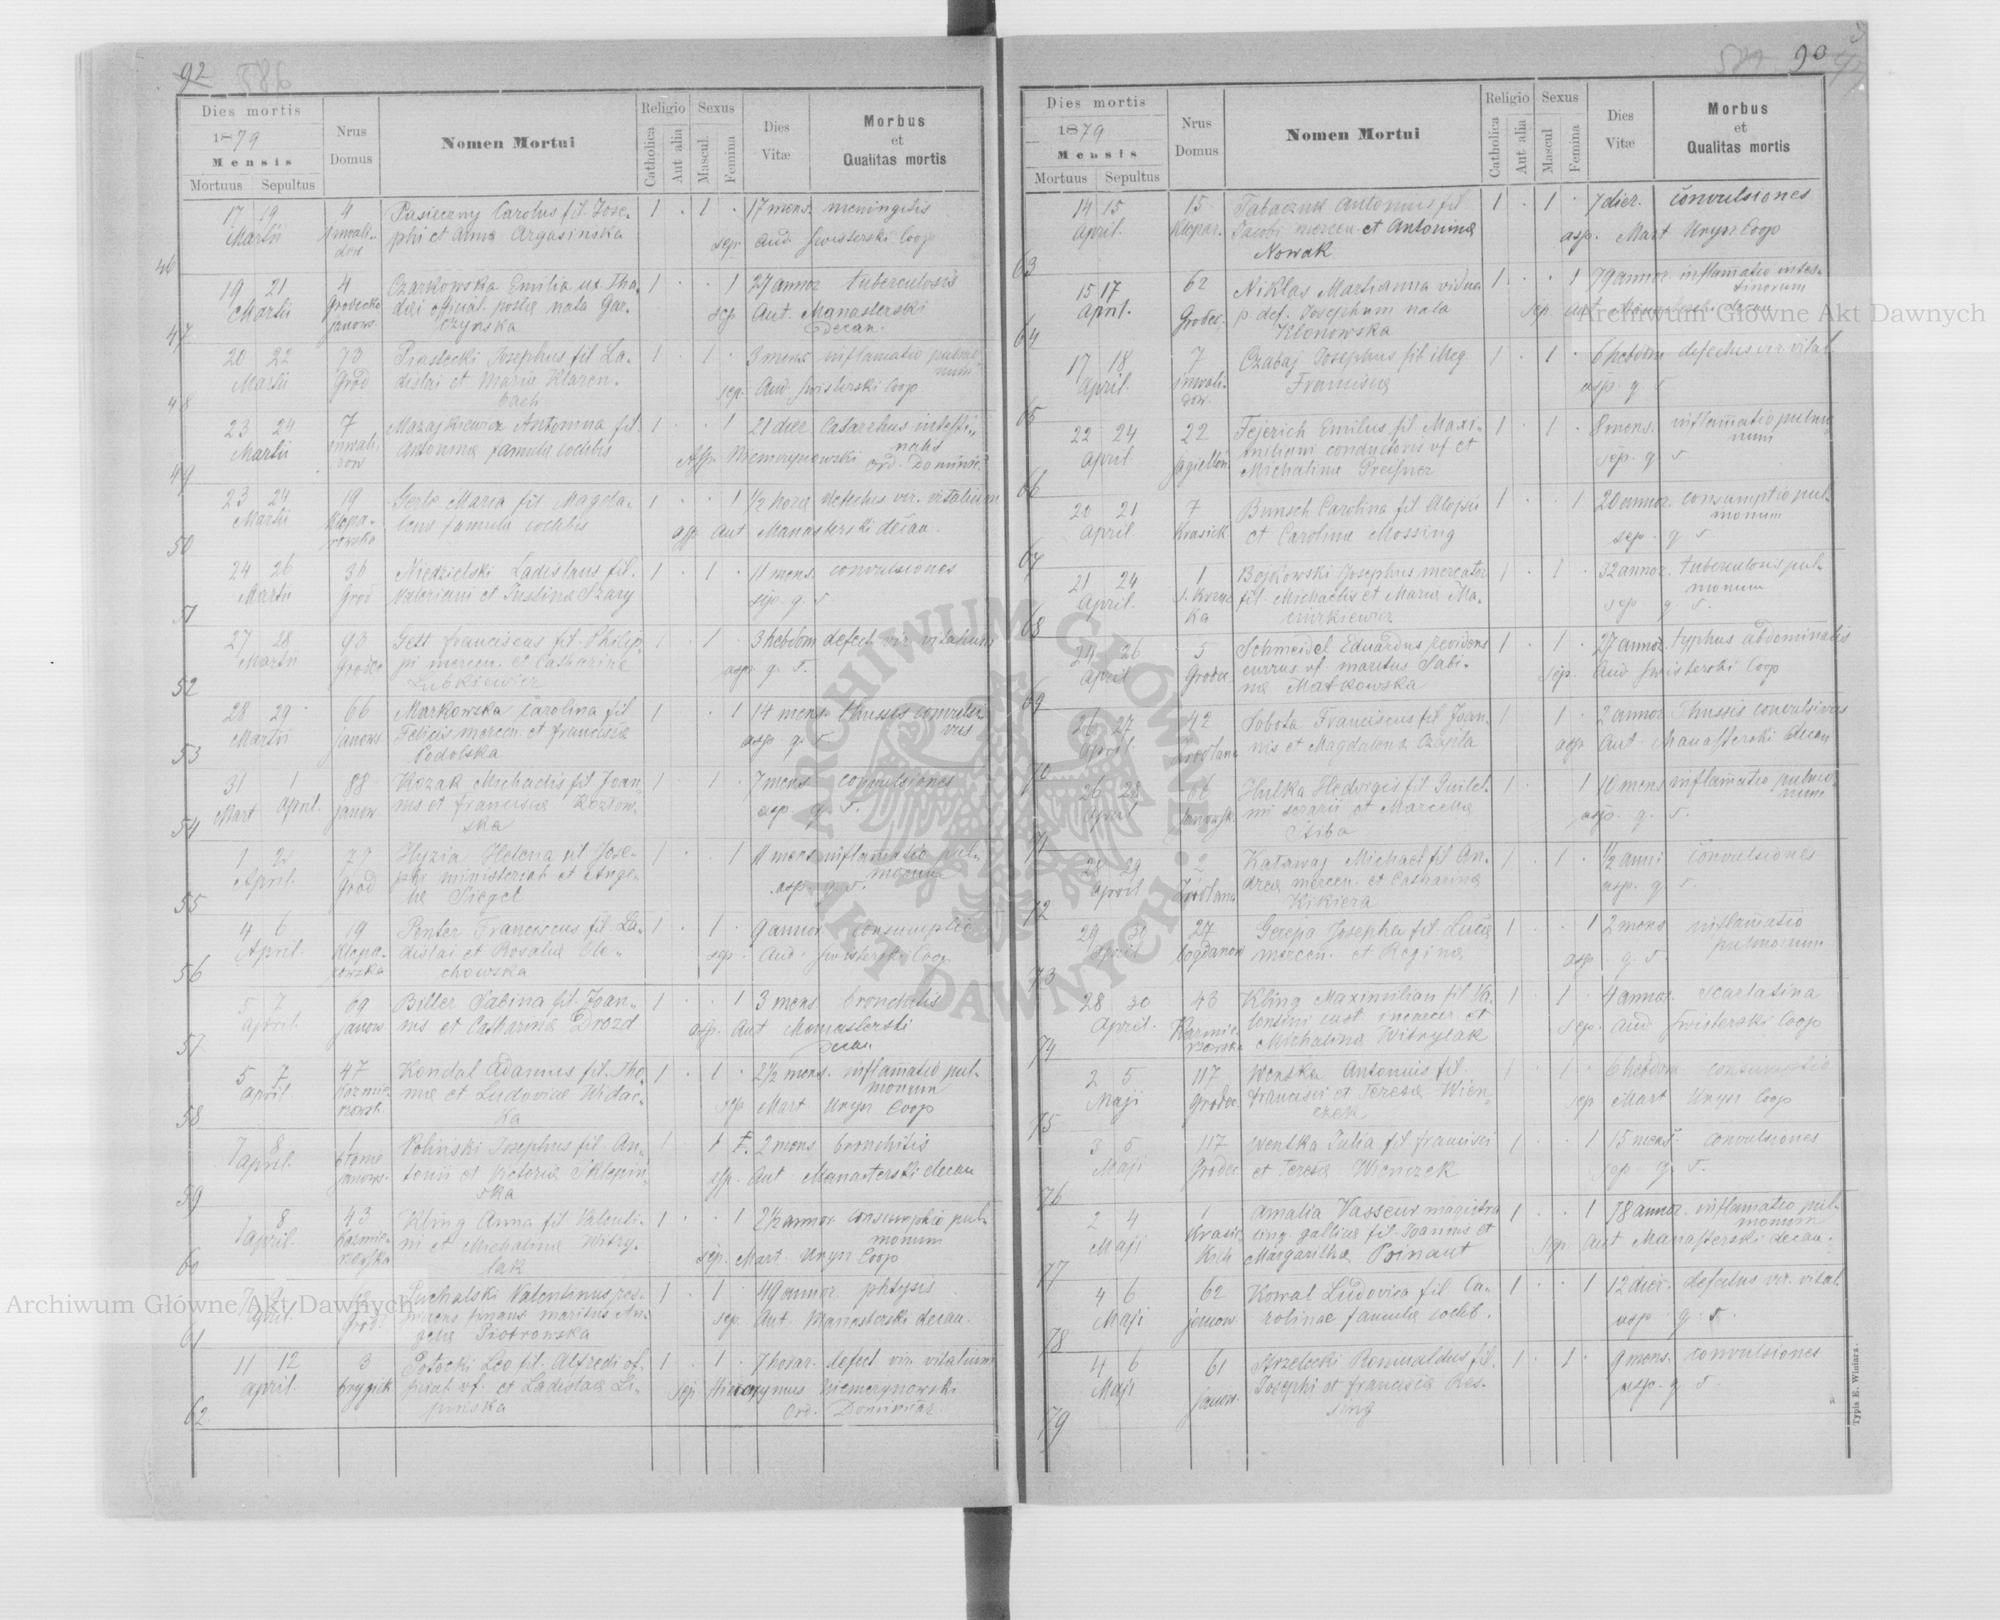 92
Dies mortis
1879
Mensis
Mortuus Sepultus
Nrus
Domus
Nomen Mortui
Religio
Catholica
Aut alia
Sexus
Mascul.
Femina
Dies
Vitæ
Morbus
et
Qualitas mortis
46
17 19
Martii
4
Pasieczny Carolus fil. Jose-
phi et Anna Argasinska
1 . 1 .
17 mens. meningitis
sep. Aud. Swisterski Coop
47
19 21
Martii
4
Grodecko
janows.
Czarkowska Emilia ux Tha-
daei official. postæ nata Gar-
czynska
1 . . 1
27 annor tuberculosis
sep Aut. Manasterski
Decan.
48
20 22
Martii
73
Grod
Josephus fil. La-
dislai et Maria Klaren-
bach
1 . 1 .
3 mens inflamatio pulmo-
num
sep. Aud. Swisterski Coop
49
23 24
Martii
7
Mazajkiewicz Antonina fil
Antoninæ famulæ coelibis
1 . . 1
21 dier Catarrhus intesti-
nalis
Asp. Niemczynowski Ord. Dominic.
50
23 24
Martii
19
Klopa-
rowska
Maria fil. Magda-
lenæ famulæ coelibis
1 . . 1
1/2 hora defectus vir. vitalium
asp Aut Manasterski decan.
51
24 26
Martii
36
Grod
Niedzielski Ladislaus fil.
Valeriani et Justina Szary
1 . 1 .
11 mens. convulsiones
sep. q. s.
52
27 28
Martii
93
Grodec
Franciscus fil. Philip-
pi mercen. et Catharinæ
Lubkiewicz
1 . 1 .
3 hebdom defect. vir. vitalium
asp q. s.
53
28 29
Martii
66
janow
Markowska Carolina fil
Felicis mercen. et Francisca
Podolska
1 . . 1
14 mens. thussis convulsi-
vus
asp. q. s.
54
31 1
Mart April.
88
janow
Kozak Michaelis fil. Joan-
nis et Francisca Kozlow-
ska
1 . 1 .
7 mens convulsiones
asp. q. s.
55
1 2
April.
79
Grod
Hyzia Helena fil Jose-
phi ministerial et Ange-
læ Siegel
1 . . 1
11 mens inflamatio pul-
monum
asp. q. s.
56
4 6
April.
19
Klopa-
rowska
Penter Franciscus fil. La-
dislai et Rosalia Ole-
chowska
1 . 1 .
9 annor consumptio
sep. Aud. Swisterski Coop
57
5 7
April.
69
janow.
Biller Sabina fil. Joan-
nis et Catharina Drozd
1 . . 1
3 mens bronchitis
asp. Aut Manasterski
Decan
58
5 7
April.
47
Kazmie-
rowsk.
Kondal Adamus fil. Tho-
mæ et Ludovica Widac-
ka
1 . 1 .
2 1/2 mens. inflamatio pul-
monum
sep Mart Uryn Coop
59
7 8
April.
janows.
Woliński Josephus fil. An-
tonii et Victoria Sklepin-
ska
1 . 1
2 mens bronchitis
asp. Aut Manasterski decan
60
7 8
April.
43
Kazmie-
rowska
Kling Anna fil Valenti-
ni et Michalina Witry-
lak
1 . . 1
2 1/2 annor. consumptio pul-
monum
sep. Mart Uryn Coop
61
April.
Grod.
Puchalski Valentinus
maritus An-
gela Piotrowska
1 . 1 .
49 annor. phtysis
sep. Aut Manasterski decan.
62
11 12
April.
3
brygick
Potocki Leo fil. Alfredi of-
ficial vf. et Ladislaa Li-
pinska
1 . 1 .
7 horar. defect vir. vitalium
sep Hieronymus Niemczynowski
Ord. Dominican.
90
Dies mortis
1879
Mensis
Mortuus Sepultus
Nrus
Domus
Nomen Mortui
Religio
Catholica
Aut alia
Sexus
Mascul
Femina
Dies
Vitæ
Morbus
et
Qualitas mortis
63
14 15
April.
15
Klopar.
Tabaczuk Antonius fil.
Jacobi mercen. et Antonina
Nowak
1 . 1 .
7 dier. convulsiones
asp. Mart Uryn Coop
64
15 17
April.
62
Grodec.
Niklas Marianna vidua
p. def. Josephum nata
Klonowska
1 . . 1
79 annor. inflamatio intes-
tinorum
sep. Aut Manasterski decan
65
17 18
April.
7
inwali-
dow.
Czabaj Josephus fil illeg.
Francisca
1 . 1 .
6 hebdom defectus vir. vital.
asp. q. s.
66
22 24
April
22
Jagiellon.
Fejerich Emilus fil. Maxi-
miliani conductoris vf et
Michalina Preisner
1 . 1 .
8 mens. inflamatio pulmo-
num
sep. q. s.
67
20 21
April
7
Krasick.
Bunsch Carolina fil Aloysii
et Carolina Mossing
1 . . 1
20 annor. consumptio pul-
monum
sep. q. s.
68
21 24
April.
1
Bojkowski Josephus mercator
fil. Michaelis et Maria Ma-
ciurkiewicz
1 . 1 .
32 annor. tuberculosis pul-
monum
sep q. s.
69
24 26
April
5
Grodec.
Schmeidel Eduardus revidens
currus vf. maritus Sabi-
na Matkowska
1 . 1 .
27 annor. typhus abdominalis
sep. Aud Swisterski Coop
70
26 27
April
42
Sobota Franciscus fil Joan-
nis et Magdalena Czapla
1 . 1 .
2 annor Thussis convulsivus
asp. Aut. Manasterski decan
71
26 28
April
66
janowsk.
Hulka Hedvigis fil Guilel-
mi serarii et Marcella
Skiba
1 . . 1
10 mens inflamatio pulmo-
num
asp. q. s.
72
28 29
April
2
Katawaj Michael fil An-
drea mercen. et Catharina
Kikiera
1 . 1 .
1/2 anni convulsiones
asp. q. s.
73
29 30
April
27
bogdanow
Gereja Josepha fil Luca
mercen. et Regina
1 . . 1
2 mens inflamatio
pulmonum
asp. q. s.
74
28 30
April.
43
Kazmie-
rzowska
Kling Maximilian fil Va-
lentini cust incarcer. et
Michalina Witrylak
1 . 1 .
4 annor. scarlatina
sep. Aud Swisterski Coop
75
2 5
Maji
117
Grodec.
Wenska Antonius fil.
Francisci et Teresa Wien-
czek
1 . 1 .
6 hebdom consumptio
sep Mart Uryn Coop
76
3 5
Maji
117
Grodec
Wenska Julia fil Francisci
et Teresa Wienczek
1 . . 1
15 mens. convulsiones
sep q. s.
77
2 4
Maji
1
Krasic
Kich
Amalia Vasseur magistra
ling. gallica fil. Joannis et
Margaritha Poinaut
1 . . 1
78 annor. inflamatio pul-
monum
sep. Aut Manasterski decan.
78
4 6
Maji
62
janow.
Kowal Ludovica fil Ca-
rolinae famula coelib.
1 . . 1
12 dier. defectus vir. vital.
asp. q. s.
79
4 6
Maji
61
janow.
Strzelecki Romualdus fil.
Josephi et Francisca Ros-
sing
1 . 1 .
9 mens. convulsiones
asp. q. s.
Typis E. Winiarz.
Archiwum Główne Akt Dawnych
Archiwum Główne Akt Dawnych
ARCHIWUM GŁÓWNE
AKT DAWNYCH